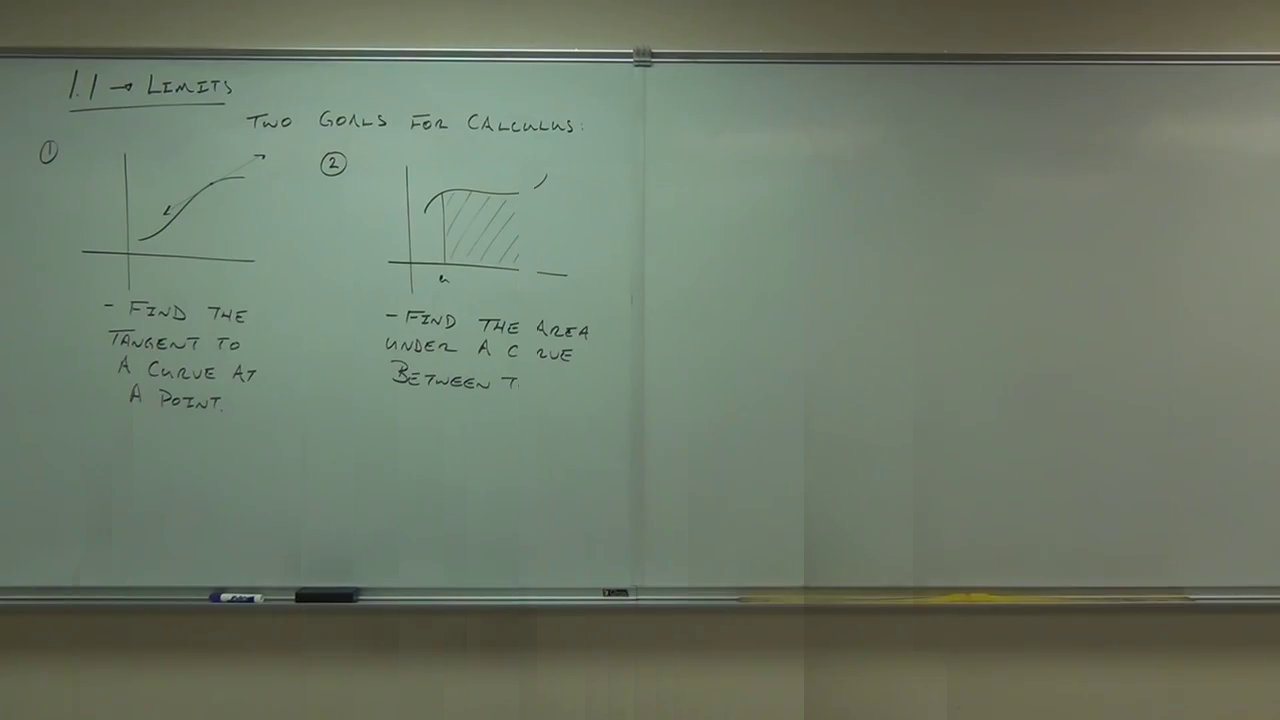 1.1 → LIMITS
TWO GOALS FOR CALCULUS:
①
- FIND THE
TANGENT TO
A CURVE AT
A POINT.
②
a
- FIND THE AREA
UNDER A C RVE
BETWEEN T